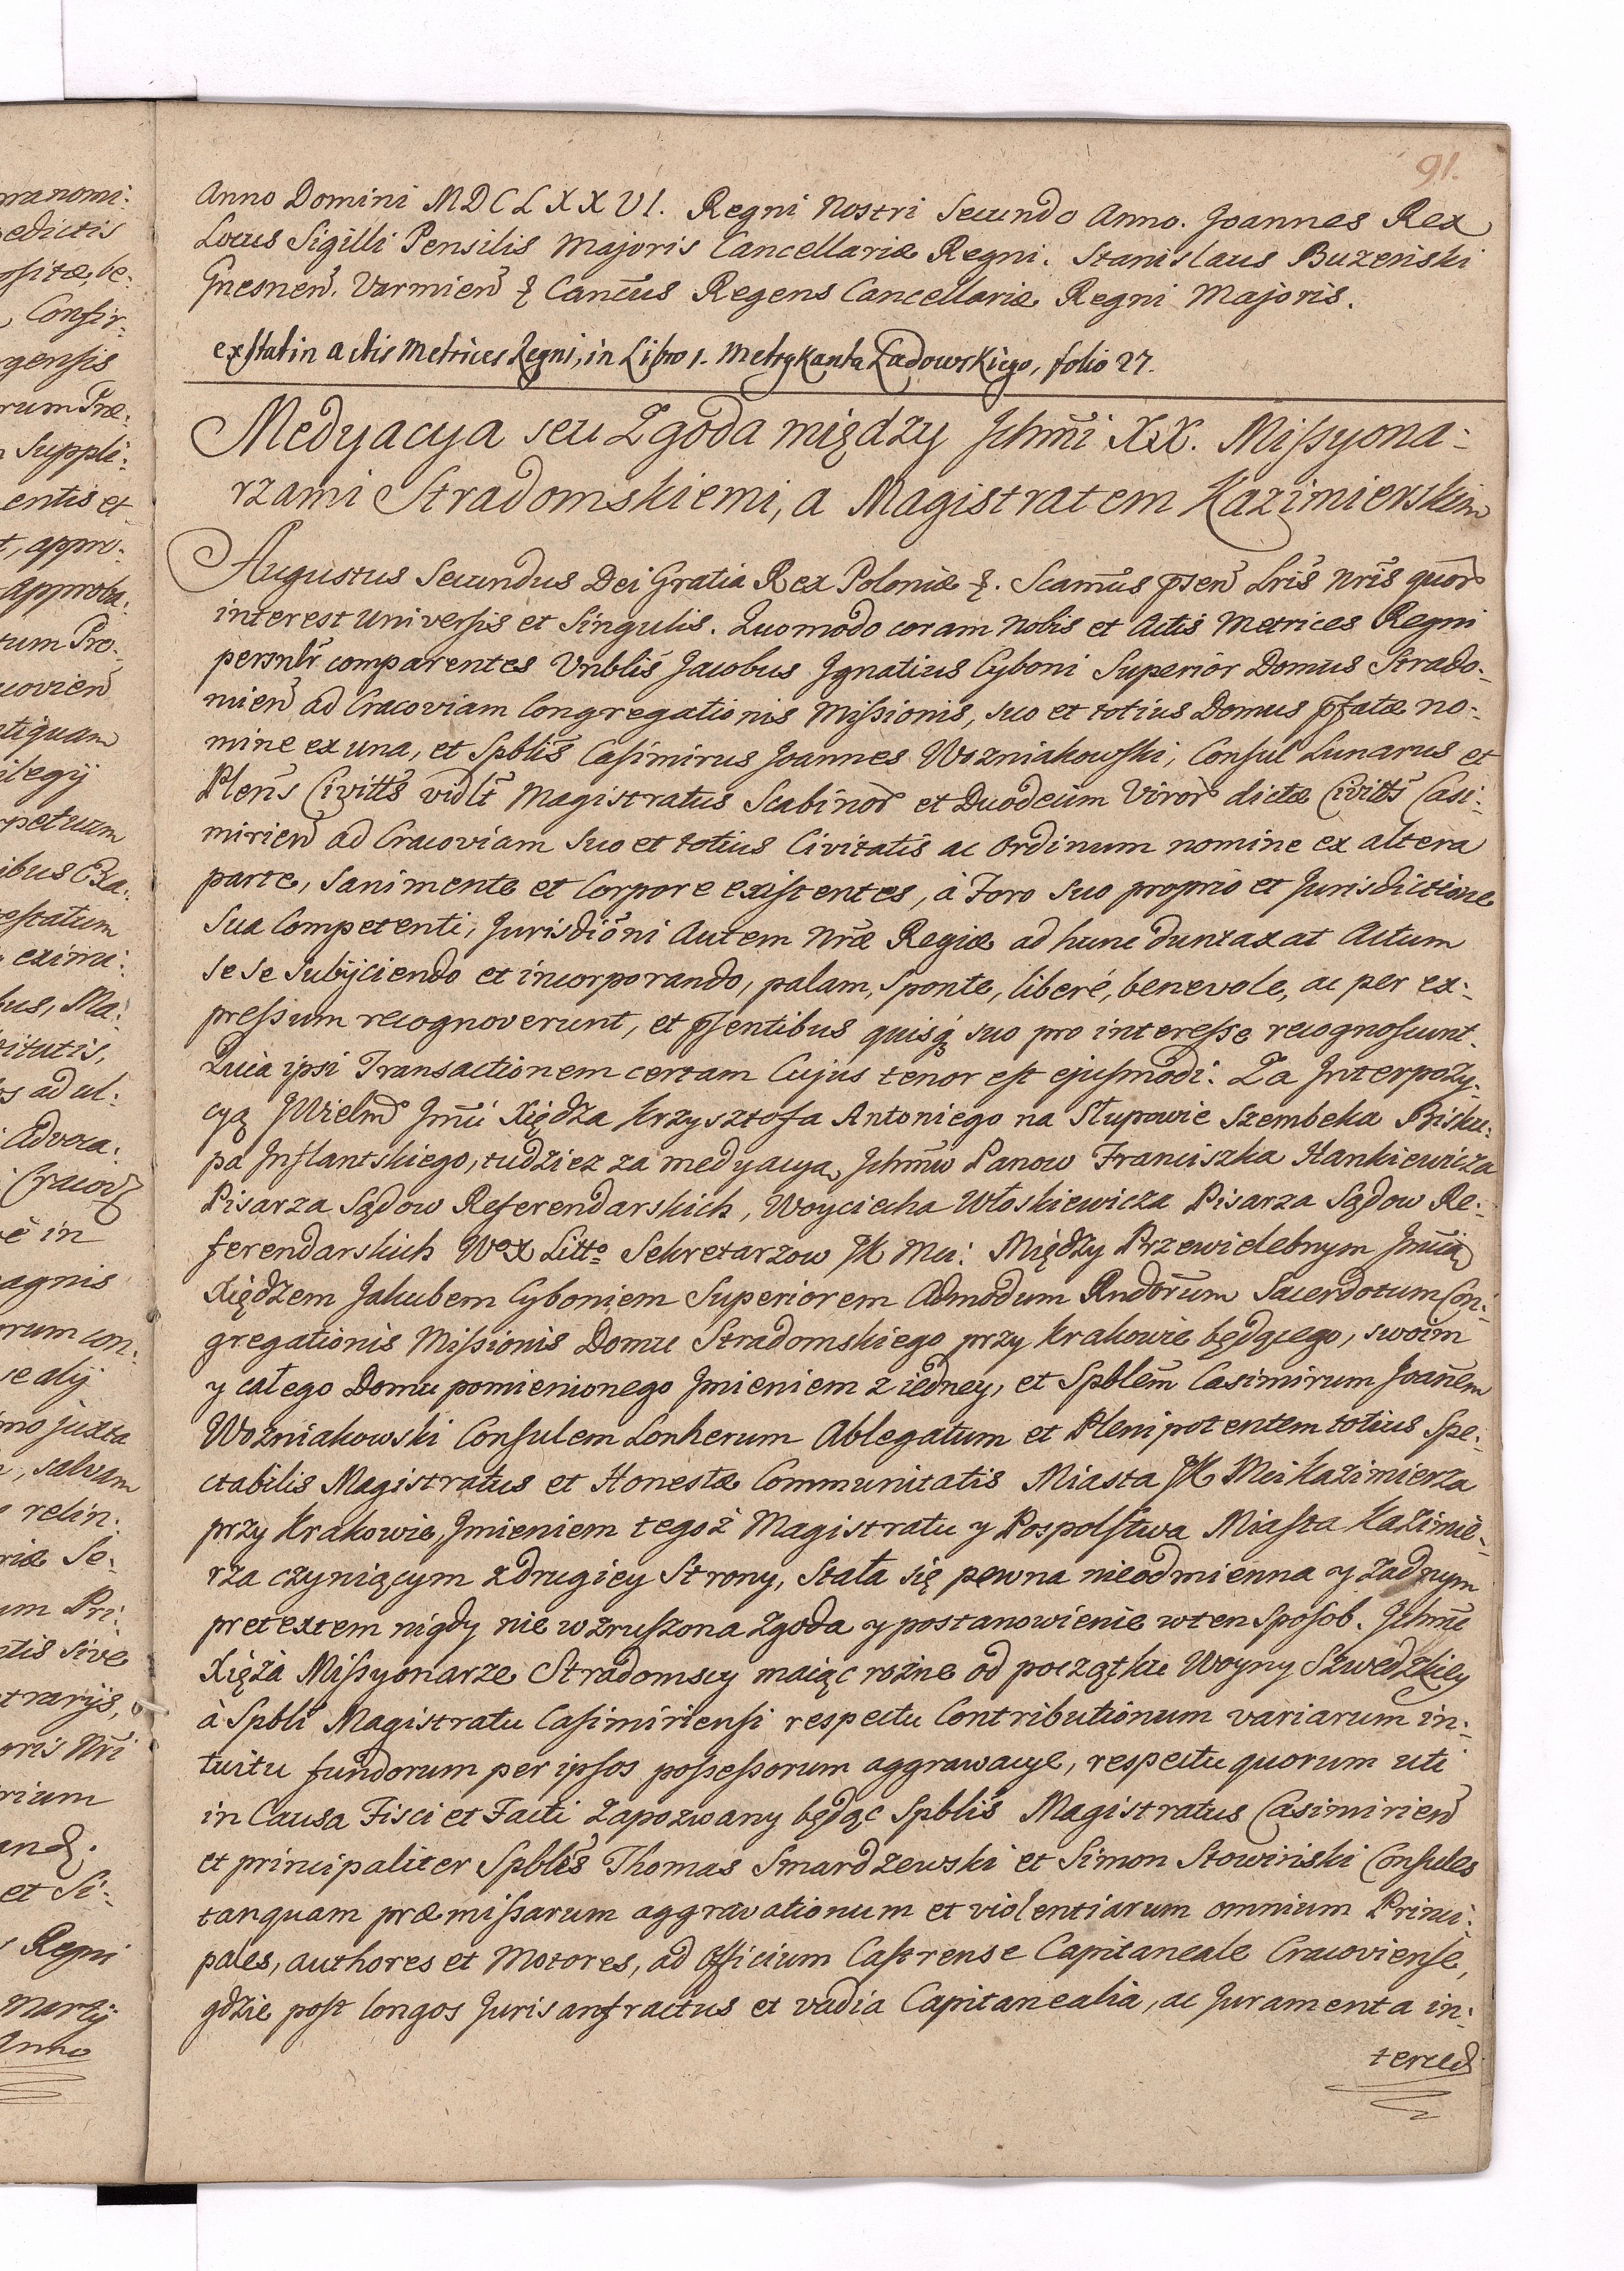 91.
Anno Domini MDCLXXVI. Regni Nostri Secundo Anno. Joannes Rex
Locus Sigilli Pensilis Majoris Cancellariæ Regni. Stanislaus Buzeński
Gnesnen̄. Varmien̄ & Can̄cus Regens Cancellariæ Regni Majoris.
exstat in actis Metrices Regni, in Libro 1. Metrykanta Ładowskiego, folio 27.
Medyacya seu Zgoda między Jchm̄i XX. Missyona-
rzami Stradomskiemi, a Magistratem Kazimierskim
Augustus Secundus Dei Gratia Rex Poloniæ &. Scam̄us p̄sen̄ Lris̄ nris̄ quor̄
interest Universis et Singulis. Quomodo coram Nobis et Actis Metrices Regni
personlr̄ comparentes Vnblis̄ Jacobus Jgnatius Cyboni Superior Domus Strado-
mien̄ ad Cracoviam Congregationis Missionis, suo et totius Domus p̄fatæ no-
mine ex una, et Spblis̄ Casimirus Joannes Wozniakowski, Consul Lunarus et
Plen̄s Civitt̄s vidlt̄ Magistratus Scabinor̄ et Duodecim Viror̄ dictæ Civitt̄s Casi-
mirien̄ ad Cracoviam suo et totius Civitatis ac Ordinum nomine ex altera
parte, sani mente et Corpore existentes, à Foro suo proprio et Jurisdictione
sua Competenti, Jurisdiōni Autem Nr̄æ Regiæ ad hunc duntaxat Actum
se se subijciendo et incorporando, palam, sponte, liberé, benevole, ac per ex-
pressum recognoverunt, et p̄sentibus quisq3 suo pro interesse recognoscunt.
Quia ipsi Transactionem certam Cujus tenor est ejusmodi. Za Jnterpozy-
cyą JWielmo Jm̄ci Xiędza Krzysztofa Antoniego na Słupowie Szembeka Bisku-
pa Jnflantskiego, tudziez za medyacyą Jchm̄w Panow Franciszka Hankiewicza
Pisarza Sądow Referendarskich, Woyciecha Włoskiewicza Pisarza Sądow Re-
ferendarskich WoX Litto Sekretarzow JK Mci: Między Przewielebnym Jm̄cią
Xiędzem Jakubem Cyboniem Superiorem Admodum Rndōrum Sacerdotum Con-
gregationis Missionis Domu Stradomskiego przy Krakowie będącego, swoim
y całego Domu pomienionego Jmieniem z iedney, et Spblem̄ Casimirum Joan̄em
Wozniakowski Consulem Lonherum Ablegatum et Plenipotentem totius Spe-
ctabilis Magistratus et Honestæ Communitatis Miasta JK Mci Kazimierza
przy Krakowie, Jmieniem tegoż Magistratu y Pospolstwa Miasta Kazimie-
rza czyniącym z drugiey Strony, Stała się pewna nieodmienna y żadnym
pretextem nigdy nie wzruszona Zgoda y postanowienie w ten sposob. Jchm̄c
Xięża Missyonarze Stradomscy maiąc rożne od początku Woyny Szwedzkiey
à Spbli Magistratu Casimiriensi respectu Contributionum variarum in-
tuitu fundorum per ipsos possessorum aggrawacye, respectu quorum uti
in Causa Fisci et Facti Zapozwany będąc Spblis̄ Magistratus Casimirien̄
et principaliter Spbles̄ Thomas Smardzewski et Simon Słowiński Consules
tanquam præmissarum aggravationum et violentiarum omnium Princi-
pales, authores et Motores, ad Officium Castrense Capitaneale Cracoviense,
gdzie post longos Juris anfractus et vadia Capitanealia, ac Juramenta in-
terced